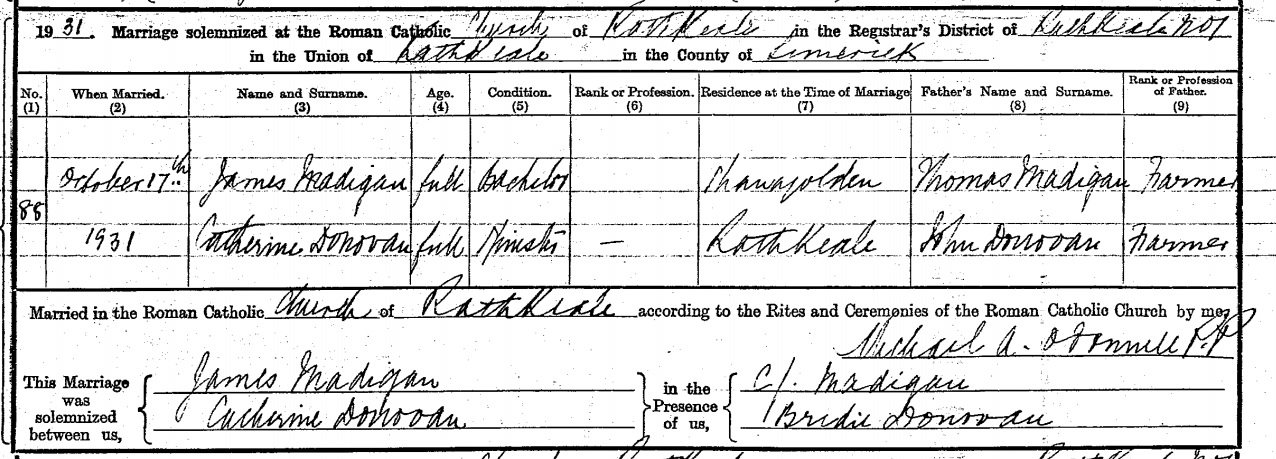 1931. Marriage solemnized at the Roman Catholic Church of RathKeale in the Registrar's District of RathKeale No 1
in the Union of RathKeale in the County of Limerick
No. When Married. Name and Surname. Age. Condition. Rank or Profession. Residence at the Time of Marriage Father's Name and Surname. Rank or Profession of Father.
(1) (2) (3) (4) (5) (6) (7) (8) (9)
October 17th James Madigan full Bachelor Shanagolden Thomas Madigan Farmer
88
1931 Catherine Donovan full Spinster — RathKeale John Donovan Farmer
Married in the Roman Catholic Church of RathKeale according to the Rites and Ceremonies of the Roman Catholic Church by me,
Michael A. O'Donnell P.P
This Marriage was solemnized between us, James Madigan
Catherine Donovan
in the Presence of us, C/. Madigan
Bridie Donovan